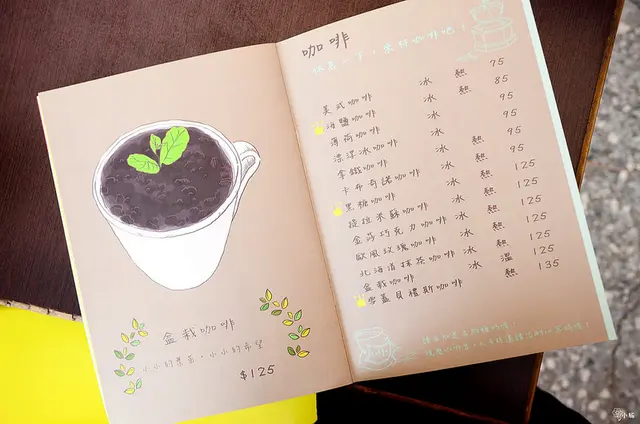 咖啡
來杯咖啡吧!
美式咖啡 冰 熱 75
海鹽咖啡 冰 熱 85
薄荷咖啡 冰 95
漂浮冰咖啡 冰 95
拿鐵咖啡 冰 熱 95
卡布奇諾咖啡 冰 熱 95
黑糖咖啡 冰 熱 125
提拉米蘇咖啡 冰 熱 125
金莎巧克力咖啡 冰 熱 125
歐風玫瑰咖啡 冰 熱 125
北海道抹茶咖啡 冰 熱 125
盆栽咖啡 冰 溫 125
雪蓋貝禮斯咖啡 熱 135
盆栽咖啡
小小的景色,小小的希望
$125